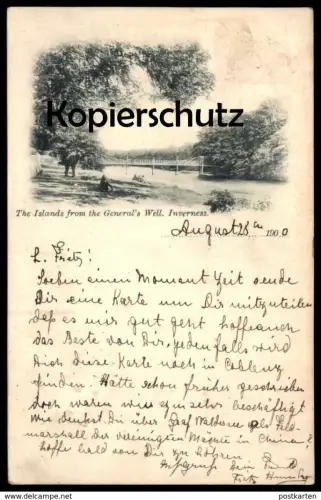 Kopierschutz
The Islands from the General's Well. Inverness.
August 28 ten 1900
L. Fritz!
Soeben einen Moment Zeit sende
Dir eine Karte um Dir mitzuteilen
daß es mir gut geht hoffe auch
das Beste von Dir, jedenfalls wird
Dich diese Karte noch in Coblenz
finden. Hätte schon früher geschrieben
doch waren wir
beschäftigt
wie denkst Du über Graf Waldersee als Feld-
marschall der vereinigten Mächte in China?
hoffe bald von Dir zu hören.
Dein Freund
Fritz